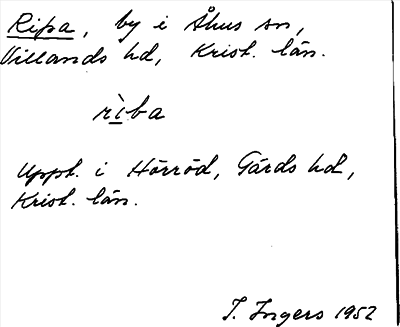 Ripa, by i Åhus sn,
Villands hd, Krist. län.
rìba
Uppt. i Hörröd, Gärds hd,
Krist. län.
I. Ingers 1952